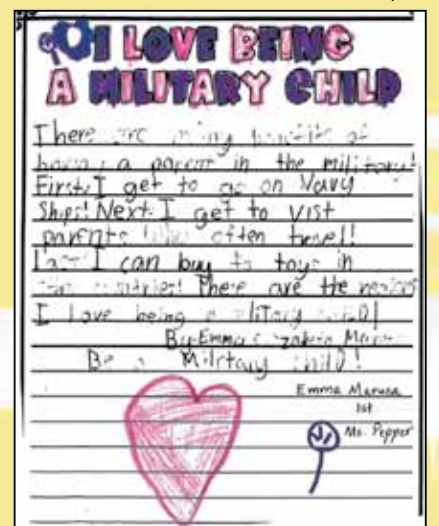 I LOVE BEING
A MILITARY CHILD
There are many benefits of
having a parent in the military!
First, I get to go on Navy
Ships! Next. I get to vist
parents who often travel!
Last I can buy to toys in
countries! there are the
I love being a
By: Emma
Be a Military child!
Emma
1st
Ms. Pepper